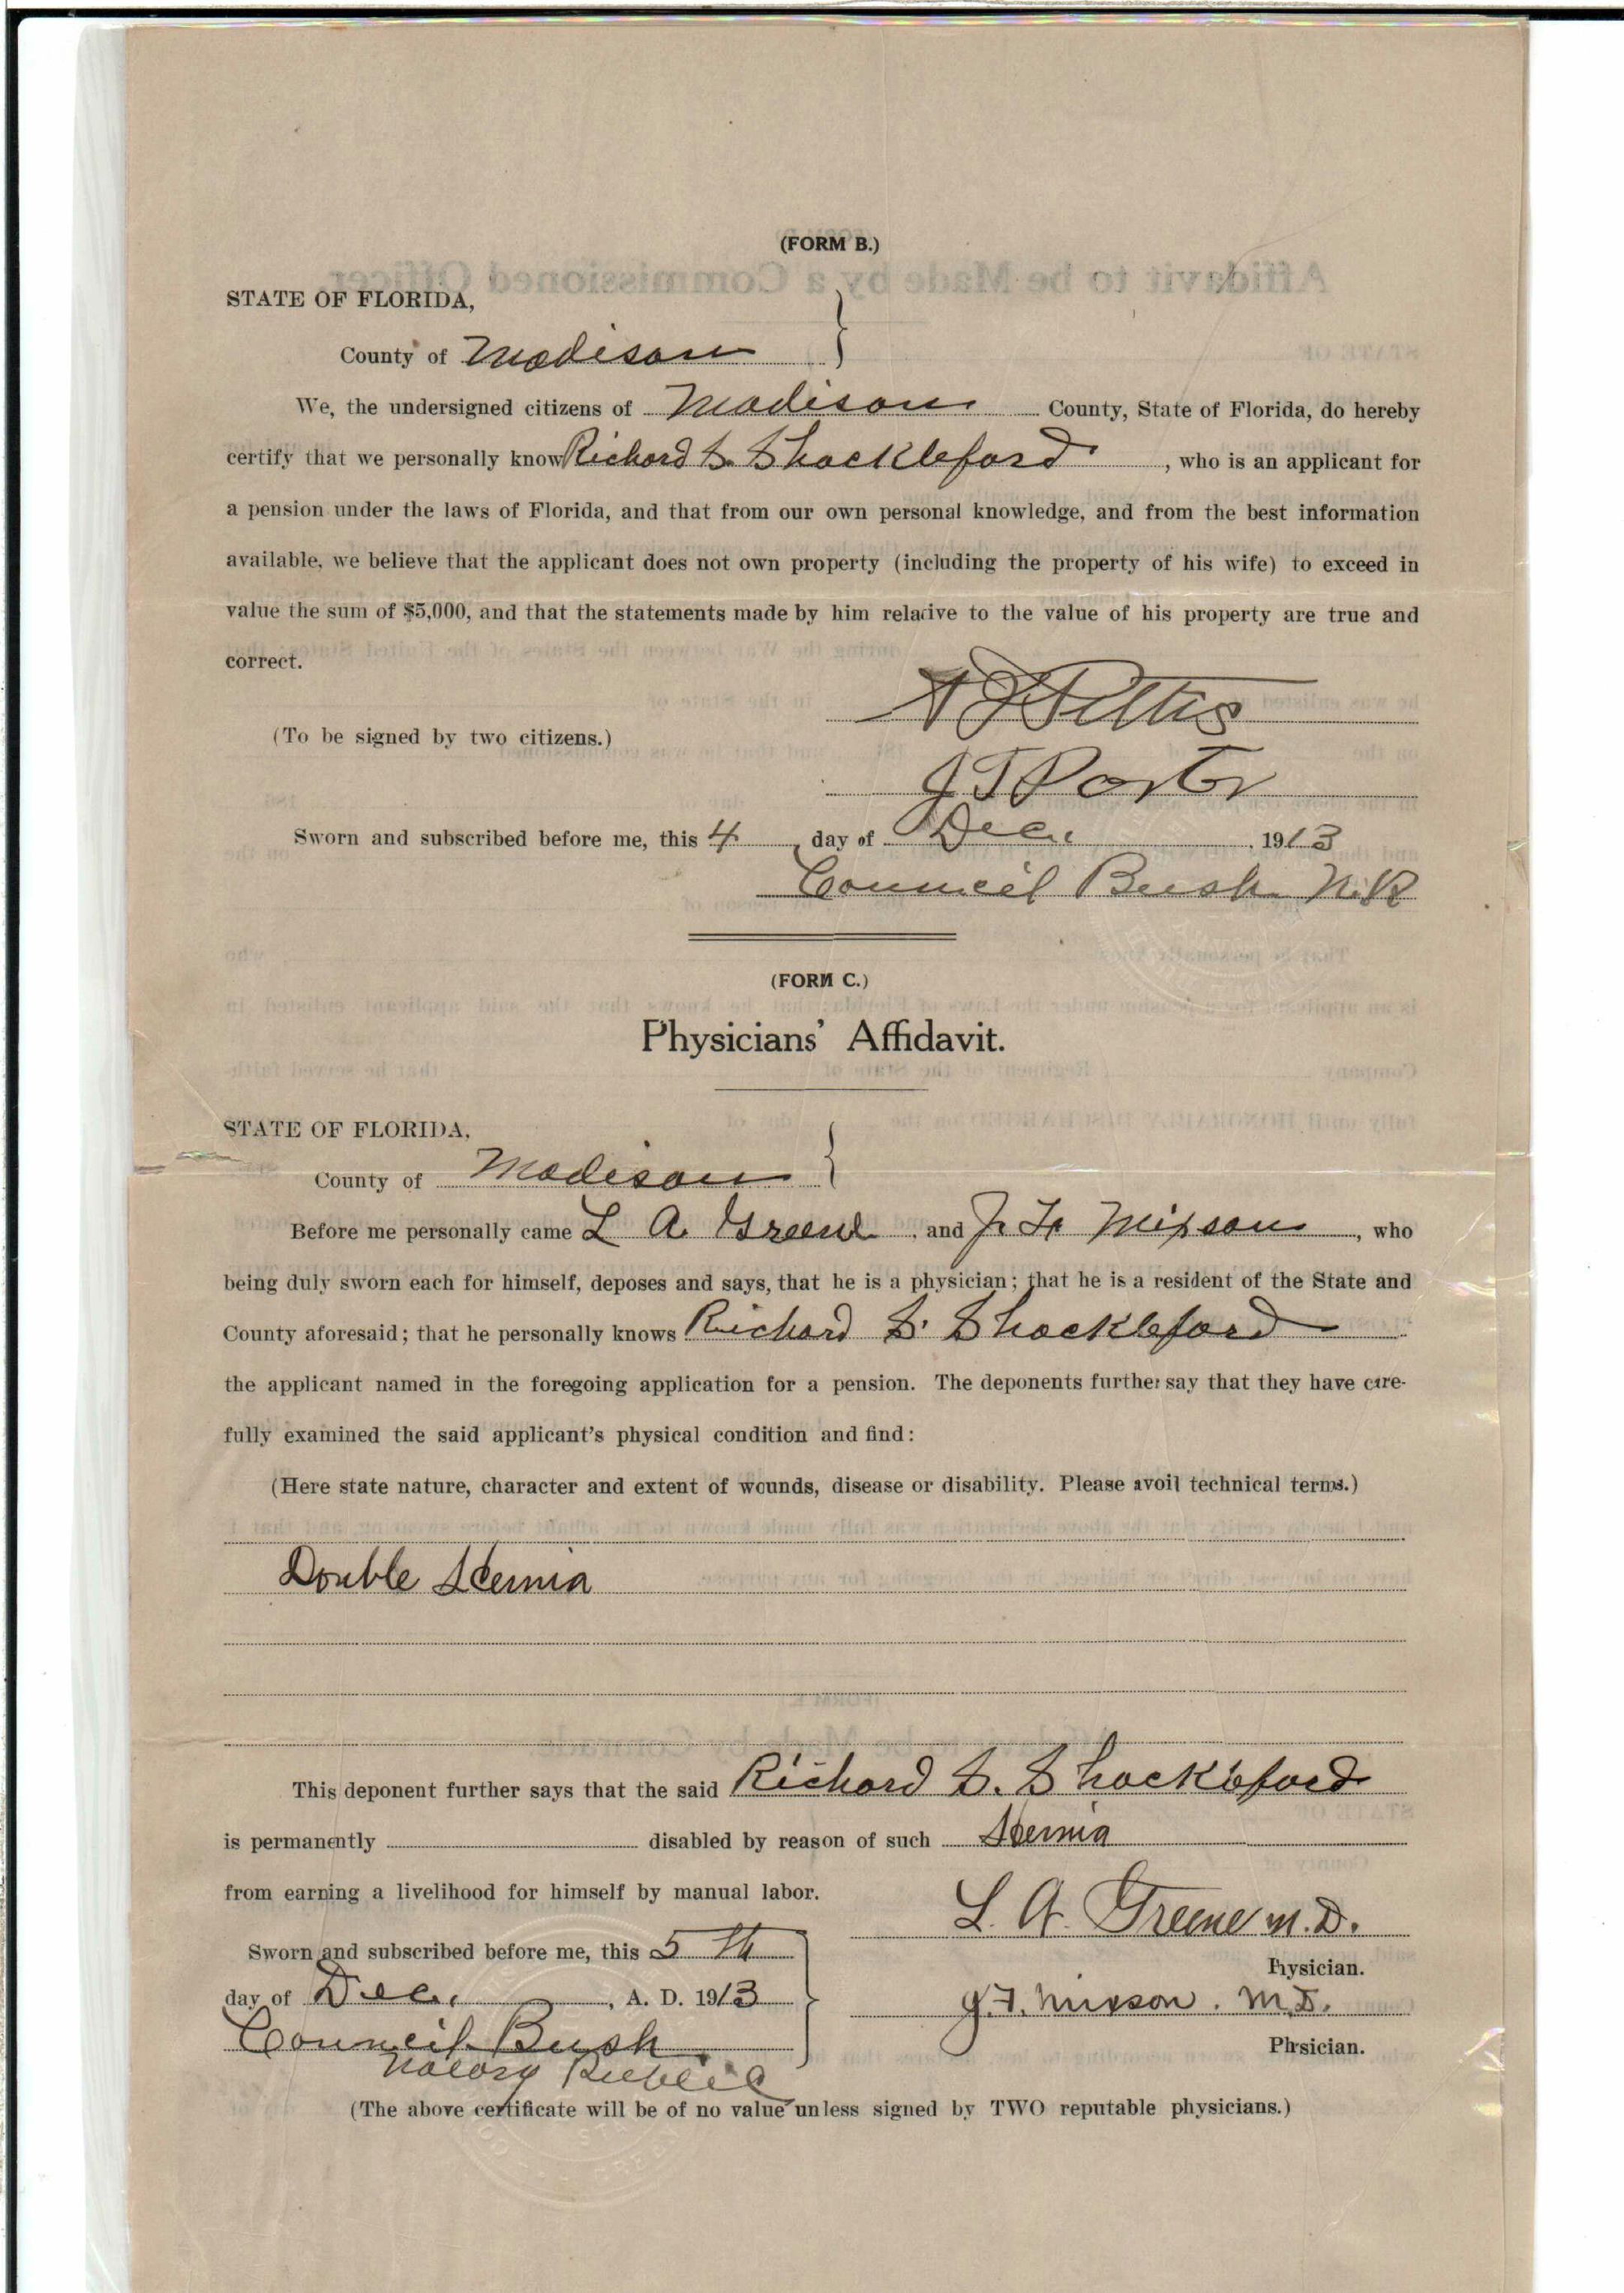 (FORM B.)
STATE OF FLORIDA,
County of Madison
We, the undersigned citizens of Madison County, State of Florida, do hereby
certify that we personally know Richard S. Shackleford, who is an applicant for
a pension under the laws of Florida, and that from our own personal knowledge, and from the best information
available, we believe that the applicant does not own property (including the property of his wife) to exceed in
value the sum of $5,000, and that the statements made by him relative to the value of his property are true and
correct.
(To be signed by two citizens.)
J T Porter
Sworn and subscribed before me, this 4 day of Dec. 1913
Council Bush N.P.
(FORM C.)
Physicians' Affidavit.
STATE OF FLORIDA,
County of Madison
Before me personally came L A. Greene, and J. F. Mixson, who
being duly sworn each for himself, deposes and says, that he is a physician; that he is a resident of the State and
County aforesaid; that he personally knows Richard S. Shackleford
the applicant named in the foregoing application for a pension. The deponents further say that they have care-
fully examined the said applicant's physical condition and find:
(Here state nature, character and extent of wounds, disease or disability. Please avoil technical terms.)
Double Hernia
This deponent further says that the said Richard S. Shackleford
is permanently disabled by reason of such Hernia
from earning a livelihood for himself by manual labor.
L. A. Greene M.D.
Sworn and subscribed before me, this 5th
Physician.
day of Dec., A. D. 1913
J. F. Mixson. M.D.
Council Bush
Physician.
Notary Public
(The above certificate will be of no value unless signed by TWO reputable physicians.)